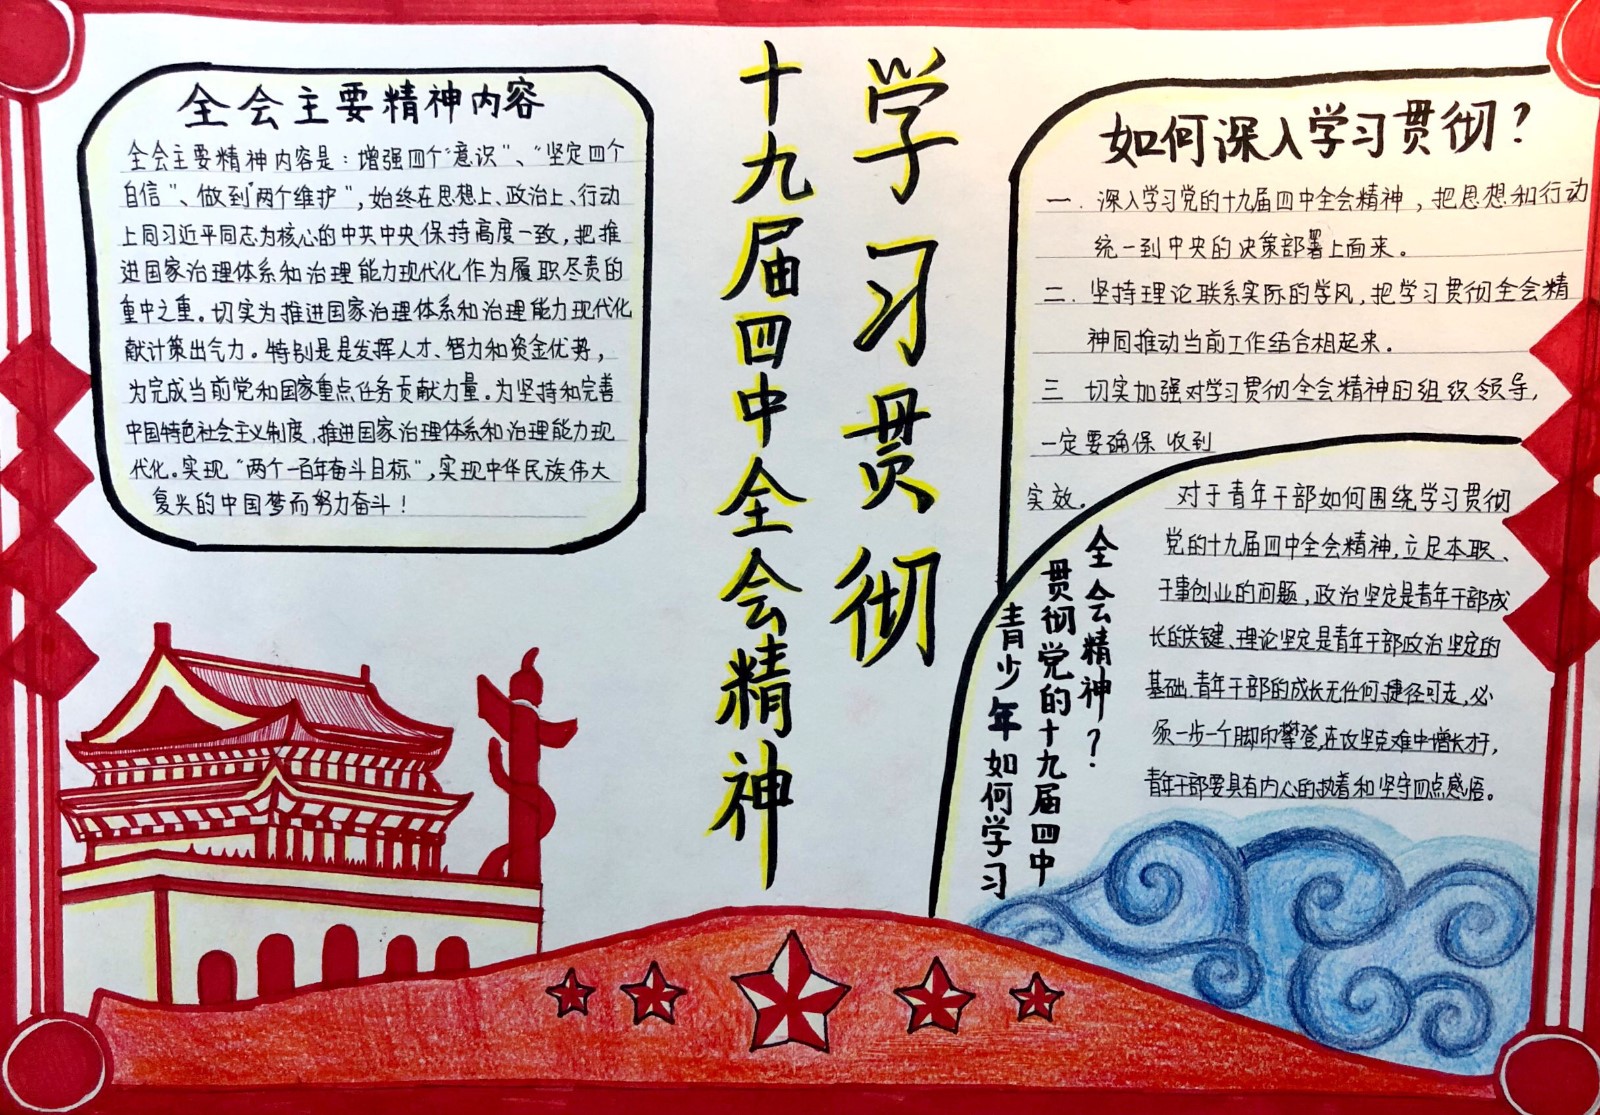 学习贯彻
十九届四中全会精神
全会主要精神内容
全会主要精神内容是：增强四个“意识”、“坚定四个
自信”、做到“两个维护”，始终在思想上、政治上、行动
上同习近平同志为核心的中共中央保持高度一致，把推
进国家治理体系和治理能力现代化作为履职尽责的
重中之重。切实为推进国家治理体系和治理能力现代化
献计策出气力。特别是是发挥人才、智力和资金优势，
为完成当前党和国家重点任务贡献力量。为坚持和完善
中国特色社会主义制度，推进国家治理体系和治理能力现
代化。实现“两个一百年奋斗目标”，实现中华民族伟大
复兴的中国梦而努力奋斗！
如何深入学习贯彻？
一．深入学习党的十九届四中全会精神，把思想和行动
统一到中央的决策部署上面来。
二．坚持理论联系实际的学风，把学习贯彻全会精
神同推动当前工作结合相起来。
三 切实加强对学习贯彻全会精神的组织领导，
一定要确保收到
实效。
青少年如何学习
贯彻党的十九届四中
全会精神？
对于青年干部如何围绕学习贯彻
党的十九届四中全会精神，立足本职、
干事创业的问题，政治坚定是青年干部成
长的关键、理论坚定是青年干部政治坚定的
基础．青年干部的成长无任何捷径可走，必
须一步一个脚印攀登，在攻坚克难中增长才干，
青年干部要具有内心的执着和坚守四点感悟。